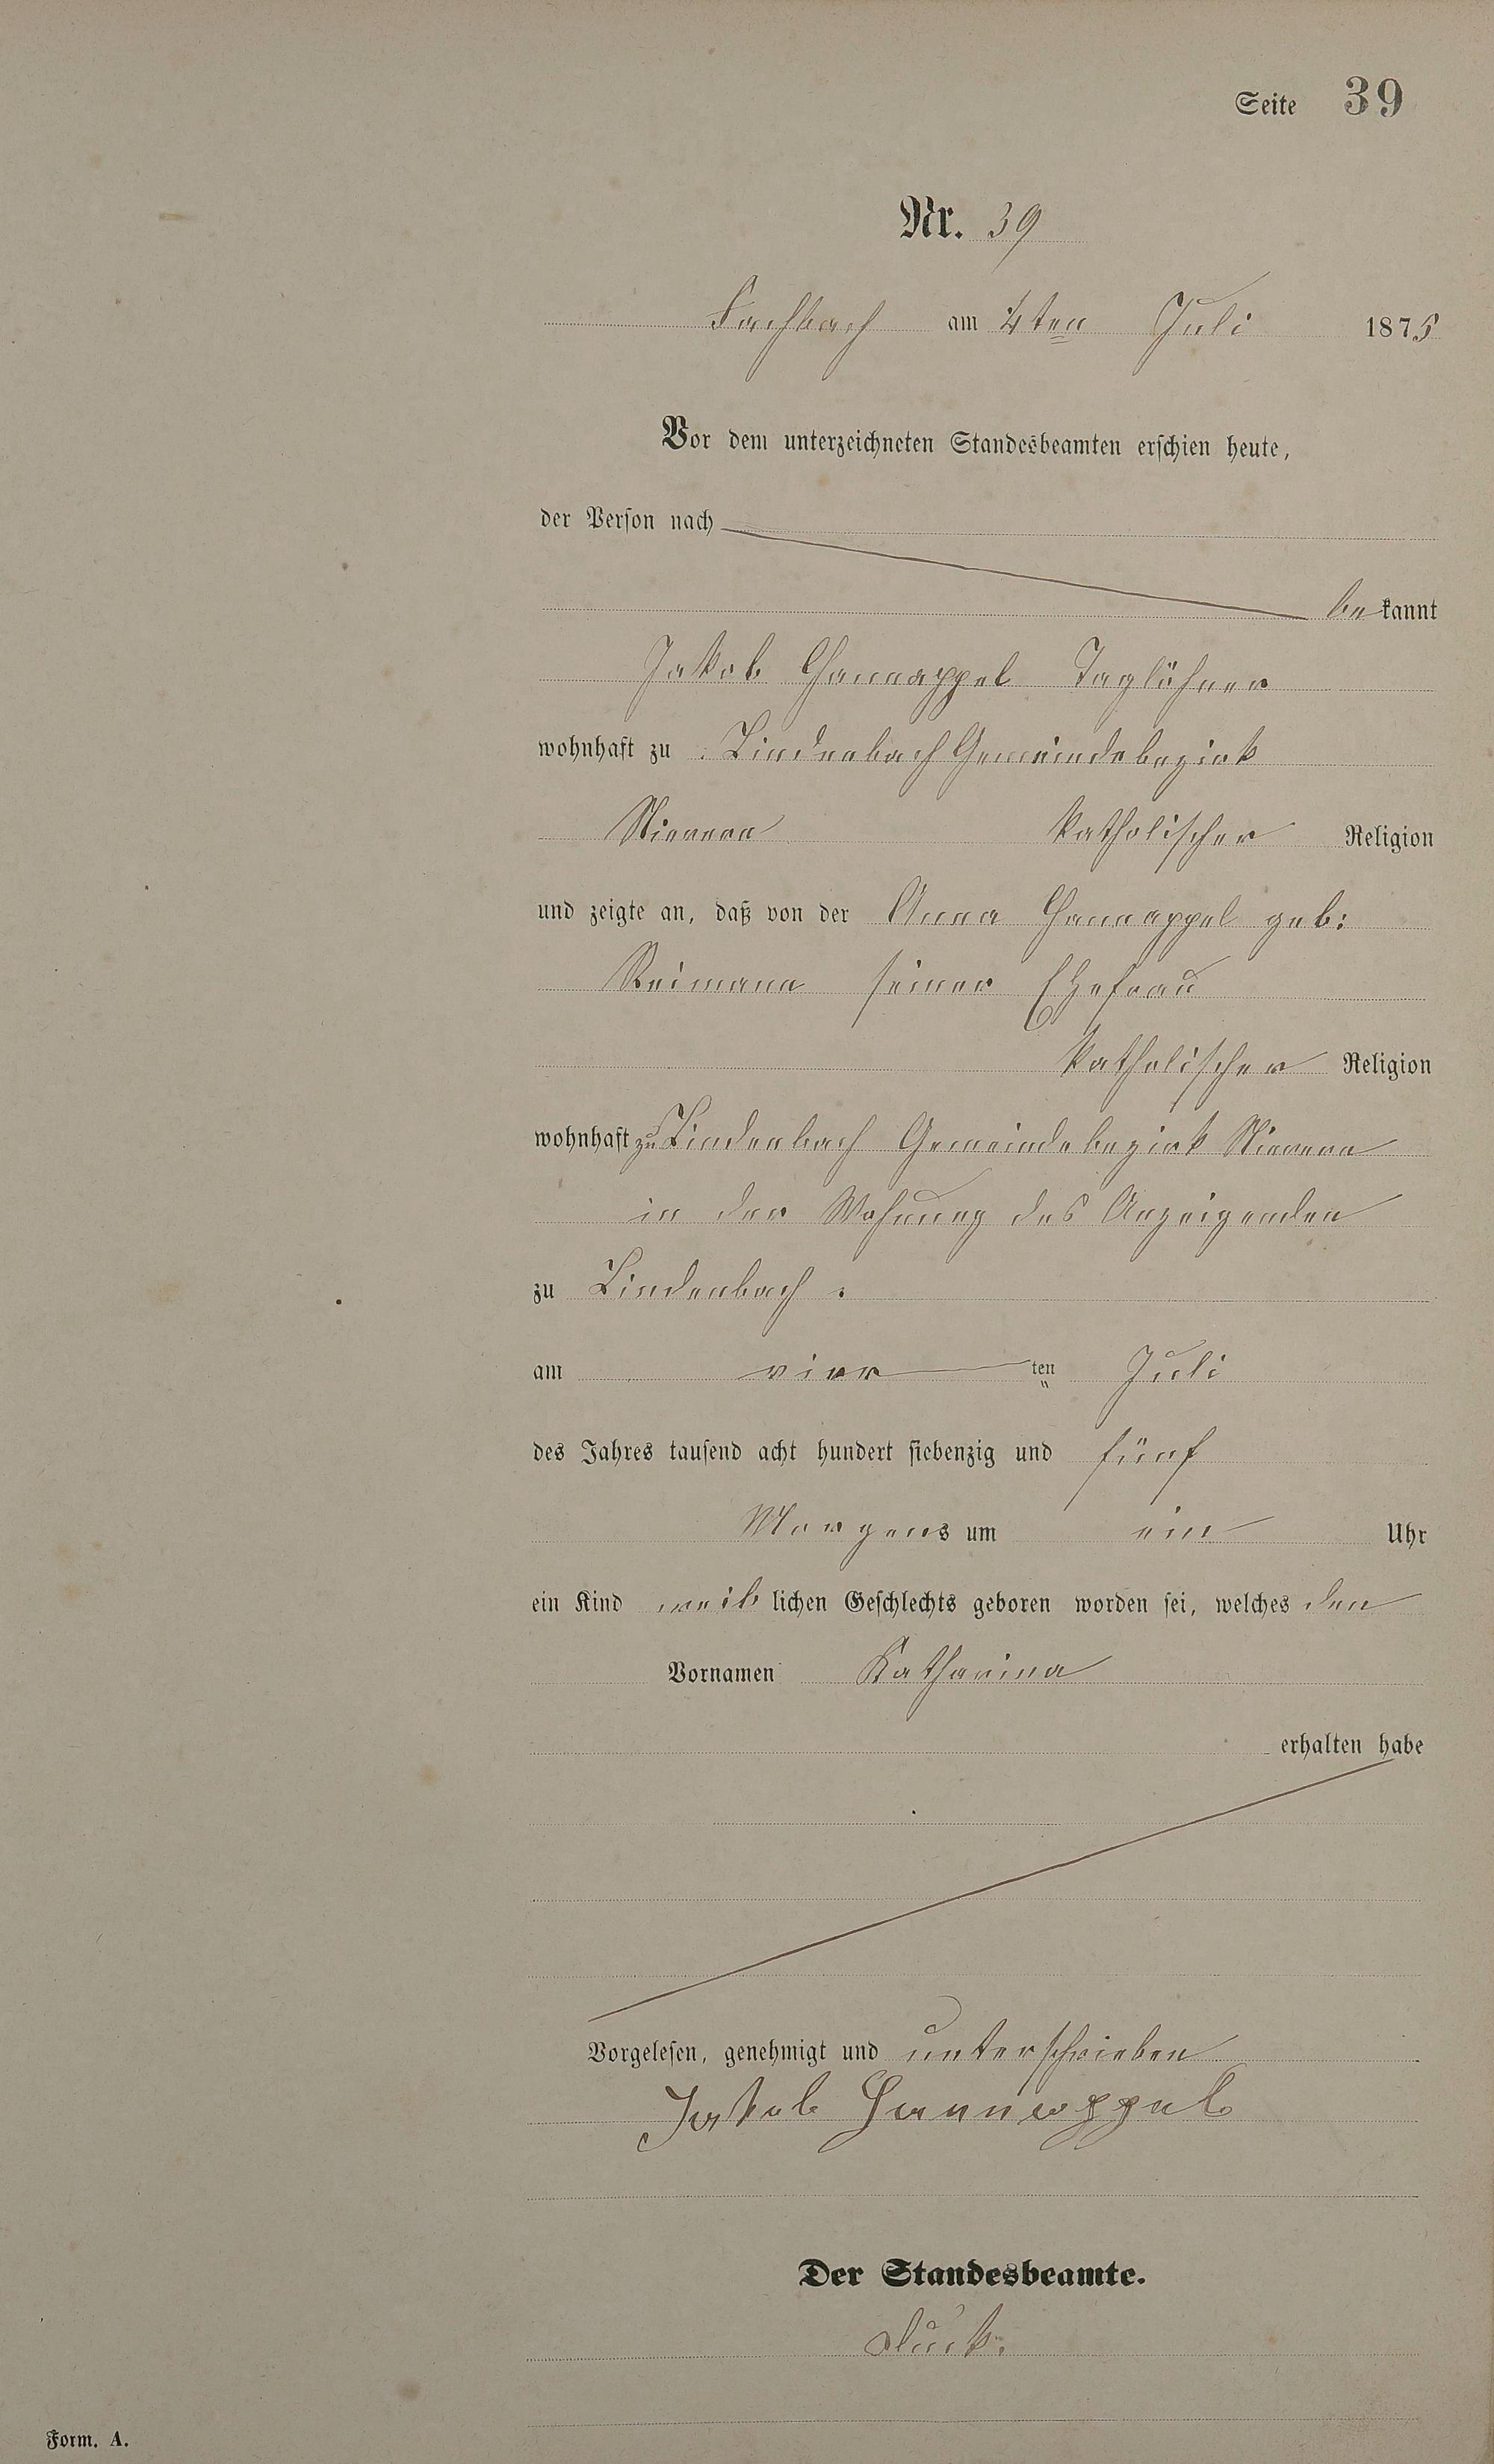 Seite 39
Nr. 39
Fachbach am 4ten Juli 1875
Vor dem unterzeichneten Standesbeamten erschien heute,
der Person nach
bekannt
Jakob Hannappel Taglöhner
wohnhaft zu Lindenbach Gemeindebezirk
Nievern katholischer Religion
und zeigte an, daß von der Anna Hannappel geb:
Reimann seiner Ehefrau
katholischer Religion
wohnhaft zu Lindenbach Gemeindebezirk Nievern
in der Wohnung des Anzeigenden
zu Lindenbach.
am vier ten Juli
des Jahres tausend acht hundert siebenzig und fünf
Morgens um ein Uhr
ein Kind weiblichen Geschlechts geboren worden sei, welches den
Vornamen Katharina
erhalten habe
Vorgelesen, genehmigt und unterschrieben
Jakob Hannappel
Der Standesbeamte.
Form. A.